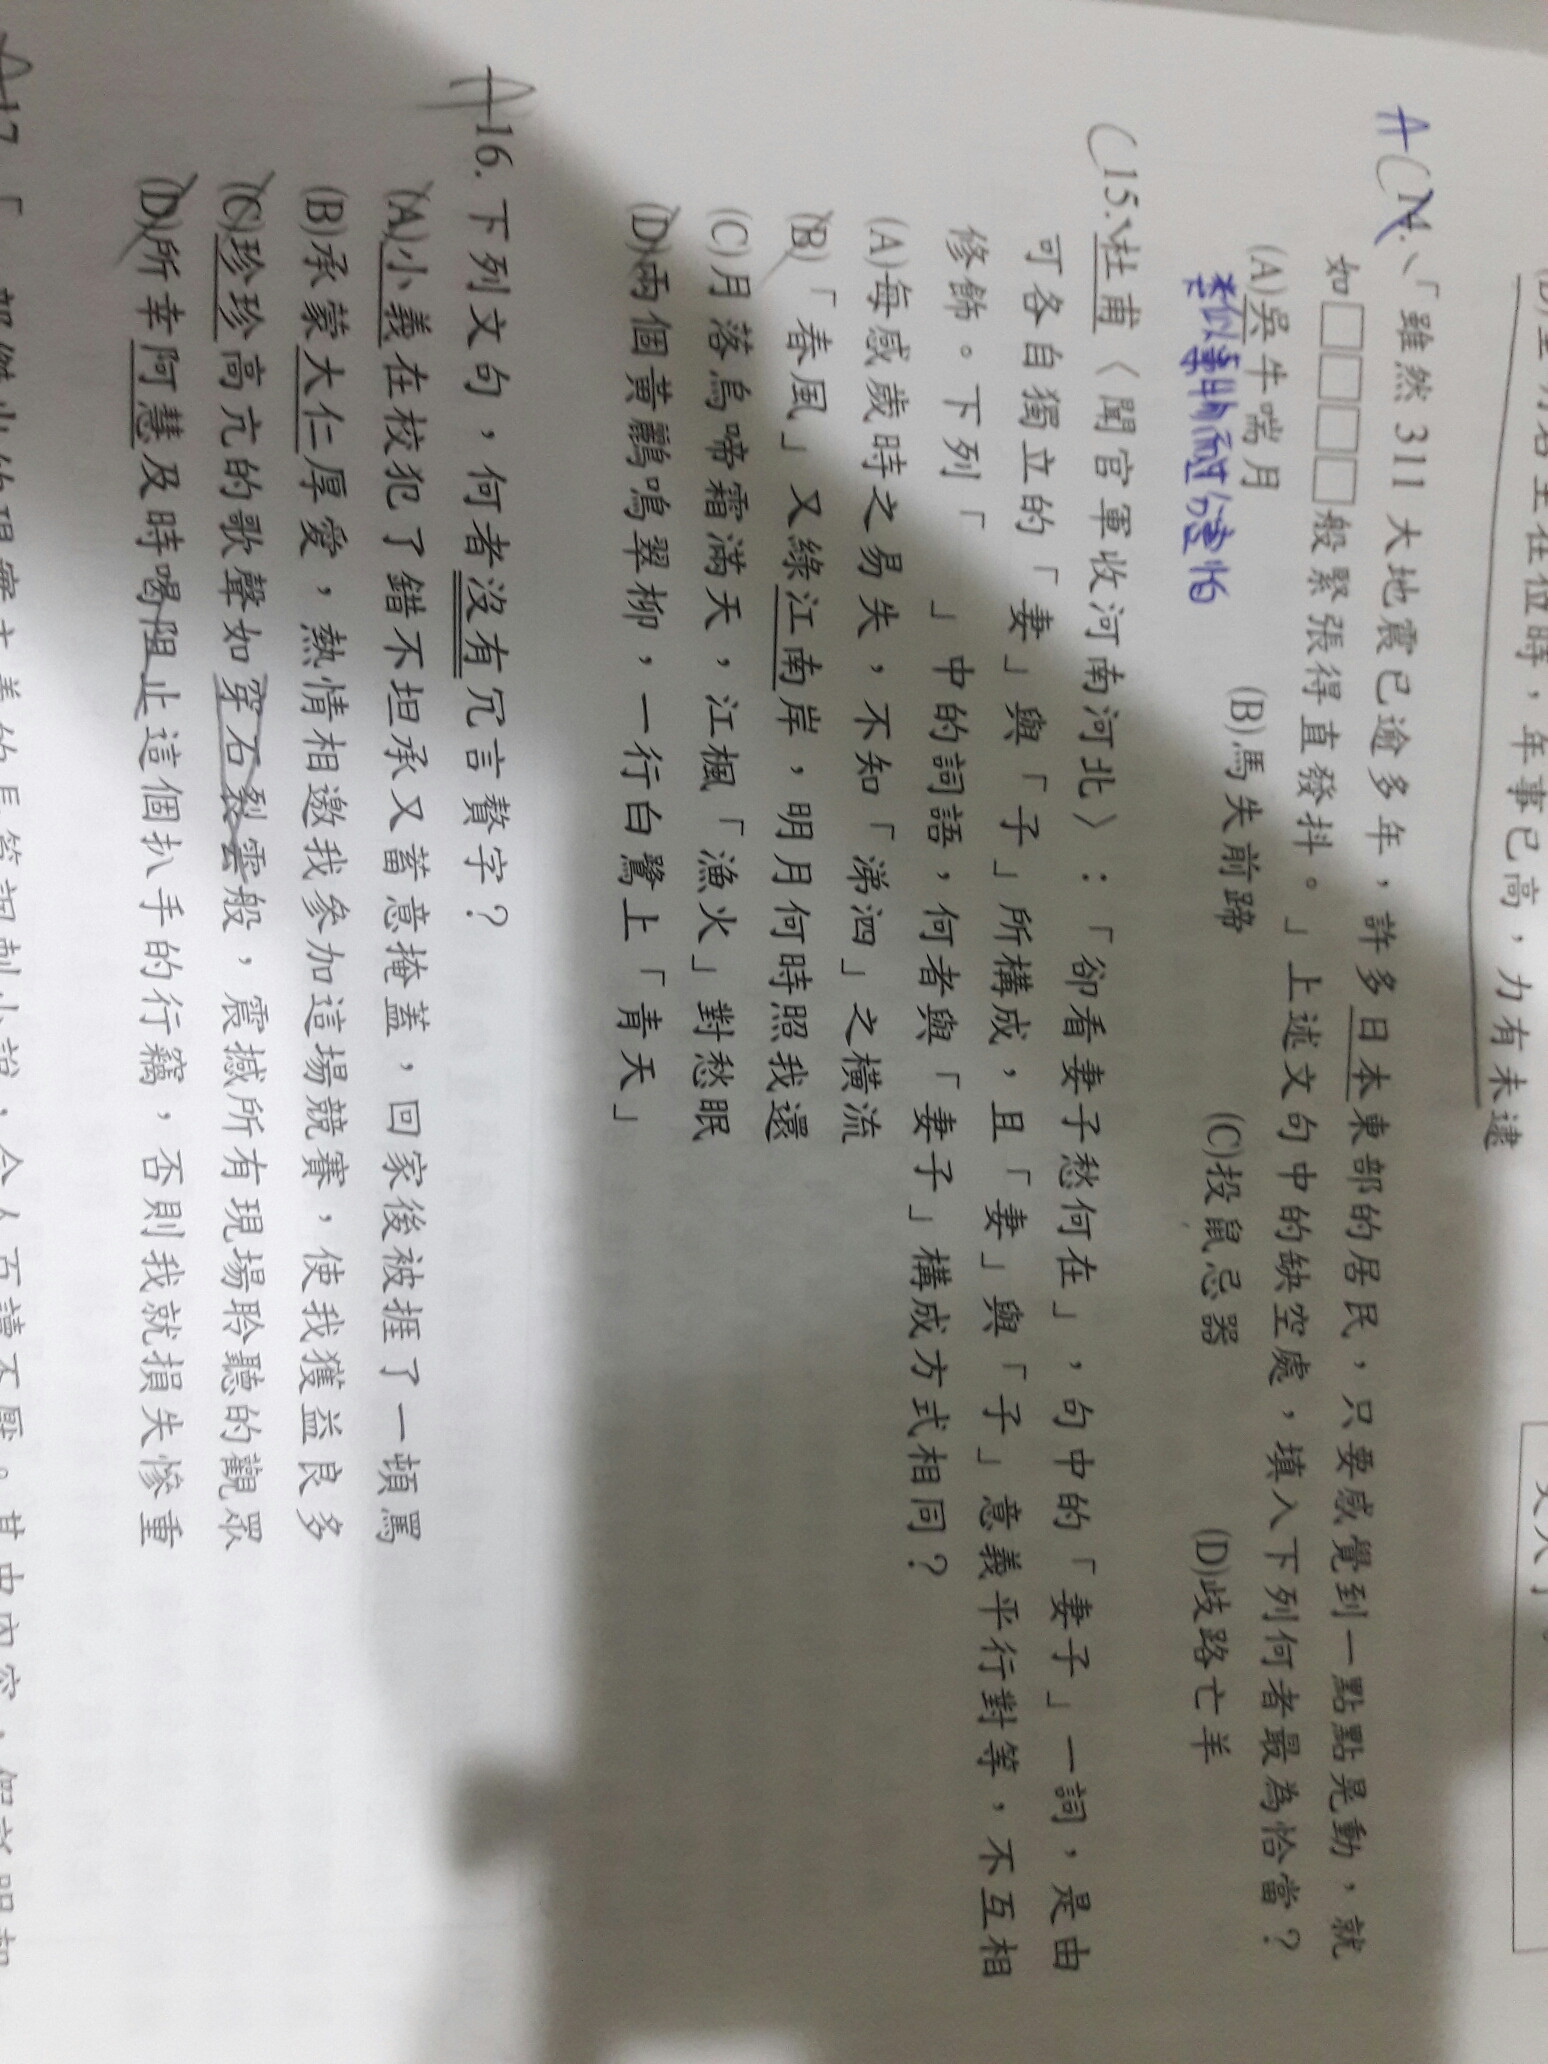 年事已高，力有未逮
14.「雖然 311 大地震已逾多年，許多日本東部的居民，只要感覺到一點點晃動，就
如□□□□般緊張得直發抖。」上述文句中的缺空處，填入下列何者最為恰當？
(A)吳牛喘月 (B)馬失前蹄 (C)投鼠忌器 (D)歧路亡羊
類似事物而過分害怕
C 15.杜甫〈聞官軍收河南河北〉：「卻看妻子愁何在」，句中的「妻子」一詞，是由
可各自獨立的「妻」與「子」所構成，且「妻」與「子」意義平行對等，不互相
修飾。下列「　」中的詞語，何者與「妻子」構成方式相同？
(A)每感歲時之易失，不知「涕泗」之橫流
(B)「春風」又綠江南岸，明月何時照我還
(C)月落烏啼霜滿天，江楓「漁火」對愁眠
(D)兩個黃鸝鳴翠柳，一行白鷺上「青天」
A 16.下列文句，何者沒有冗言贅字？
(A)小義在校犯了錯不坦承又蓄意掩蓋，回家後被捱了一頓罵
(B)承蒙大仁厚愛，熱情相邀我參加這場競賽，使我獲益良多
(C)珍珍高亢的歌聲如穿石裂雲般，震撼所有現場聆聽的觀眾
(D)所幸阿慧及時喝阻止這個扒手的行竊，否則我就損失慘重
A 17.「